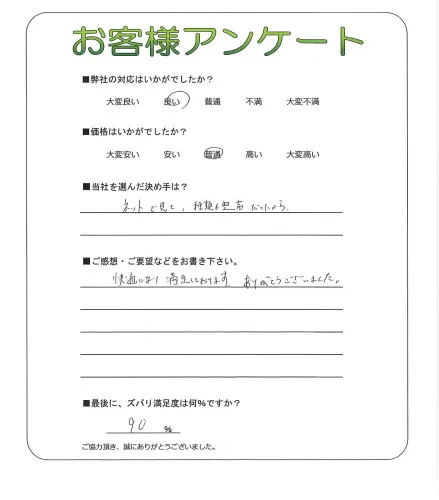 お客様アンケート
■弊社の対応はいかがでしたか？
大変良い 良い 普通 不満 大変不満
■価格はいかがでしたか？
大変安い 安い 普通 高い 大変高い
■当社を選んだ決め手は？
ネットで見て、種類も豊富だったから。
■ご感想・ご要望などをお書き下さい。
快適になり満足しております。ありがとうございました。
■最後に、ズバリ満足度は何％ですか？
90 ％
ご協力頂き、誠にありがとうございました。